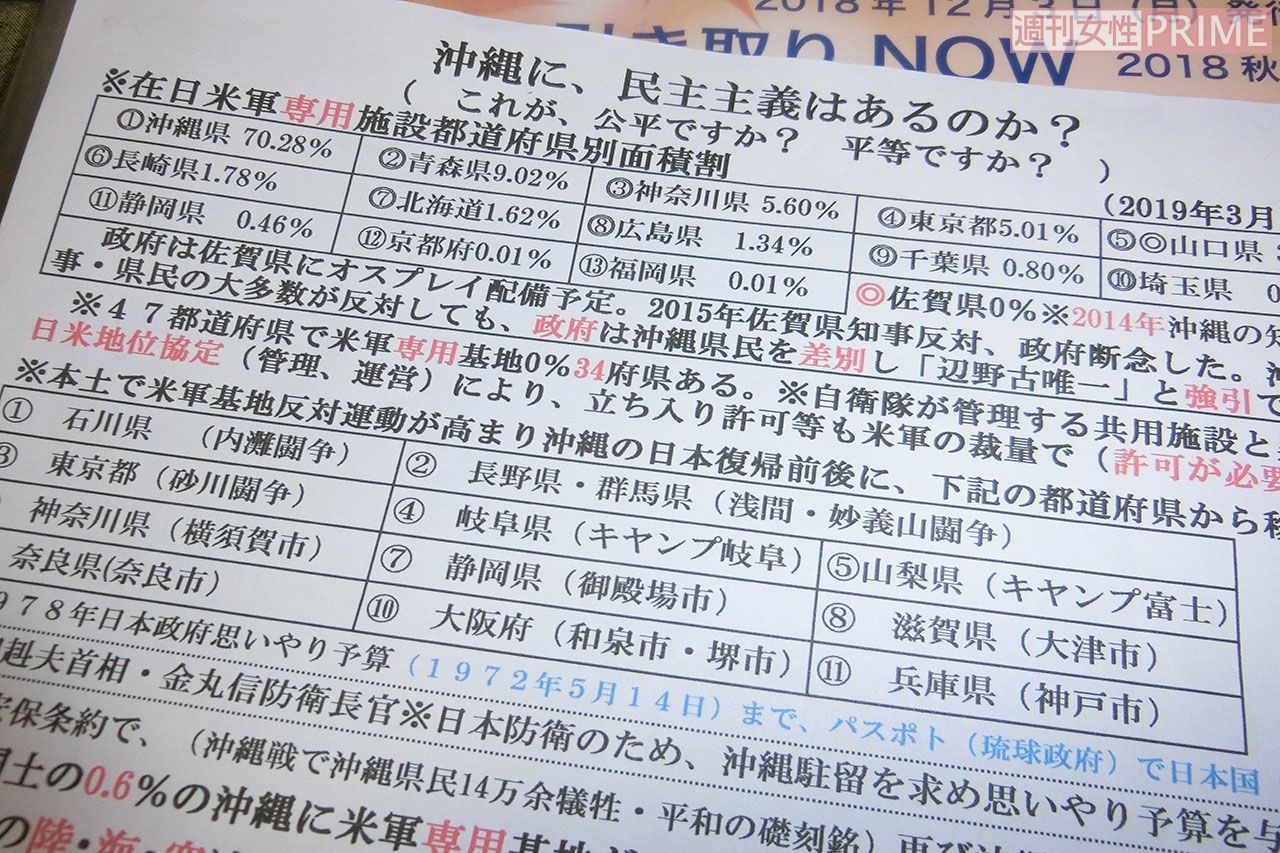 2018年12月3日（月）発行
引き取り NOW 2018 秋
週刊女性PRIME
沖縄に、民主主義はあるのか？
（ これが、公平ですか？ 平等ですか？ ）
※在日米軍専用施設都道府県別面積割 （2019年3月
①沖縄県 70.28% ②青森県9.02% ③神奈川県 5.60% ④東京都5.01% ⑤◎山口県
⑥長崎県1.78% ⑦北海道1.62% ⑧広島県 1.34% ⑨千葉県 0.80% ⑩埼玉県 0
⑪静岡県 0.46% ⑫京都府0.01% ⑬福岡県 0.01% ◎佐賀県0%※2014年沖縄の知
政府は佐賀県にオスプレイ配備予定。2015年佐賀県知事反対、政府断念した。
事・県民の大多数が反対しても、政府は沖縄県民を差別し「辺野古唯一」と強引で
※４７都道府県で米軍専用基地0%34府県ある。※自衛隊が管理する共用施設と
日米地位協定（管理、運営）により、立ち入り許可等も米軍の裁量で（許可が必要
※本土で米軍基地反対運動が高まり沖縄の日本復帰前後に、下記の都道府県から移
① 石川県 （内灘闘争） ② 長野県・群馬県（浅間・妙義山闘争）
③ 東京都（砂川闘争） ④ 岐阜県（キャンプ岐阜） ⑤山梨県（キャンプ富士）
神奈川県（横須賀市） ⑦ 静岡県（御殿場市） ⑧ 滋賀県（大津市）
奈良県(奈良市） ⑩ 大阪府（和泉市・堺市） ⑪ 兵庫県（神戸市）
９７８年日本政府思いやり予算（１９７２年５月１４日）まで、パスポト（琉球政府）で日本国
赳夫首相・金丸信防衛長官※日本防衛のため、沖縄駐留を求め思いやり予算を与
安保条約で、（沖縄戦で沖縄県民14万余犠牲・平和の礎刻銘）再び
国土の0.6%の沖縄に米軍専用基地が
の陸・海・空